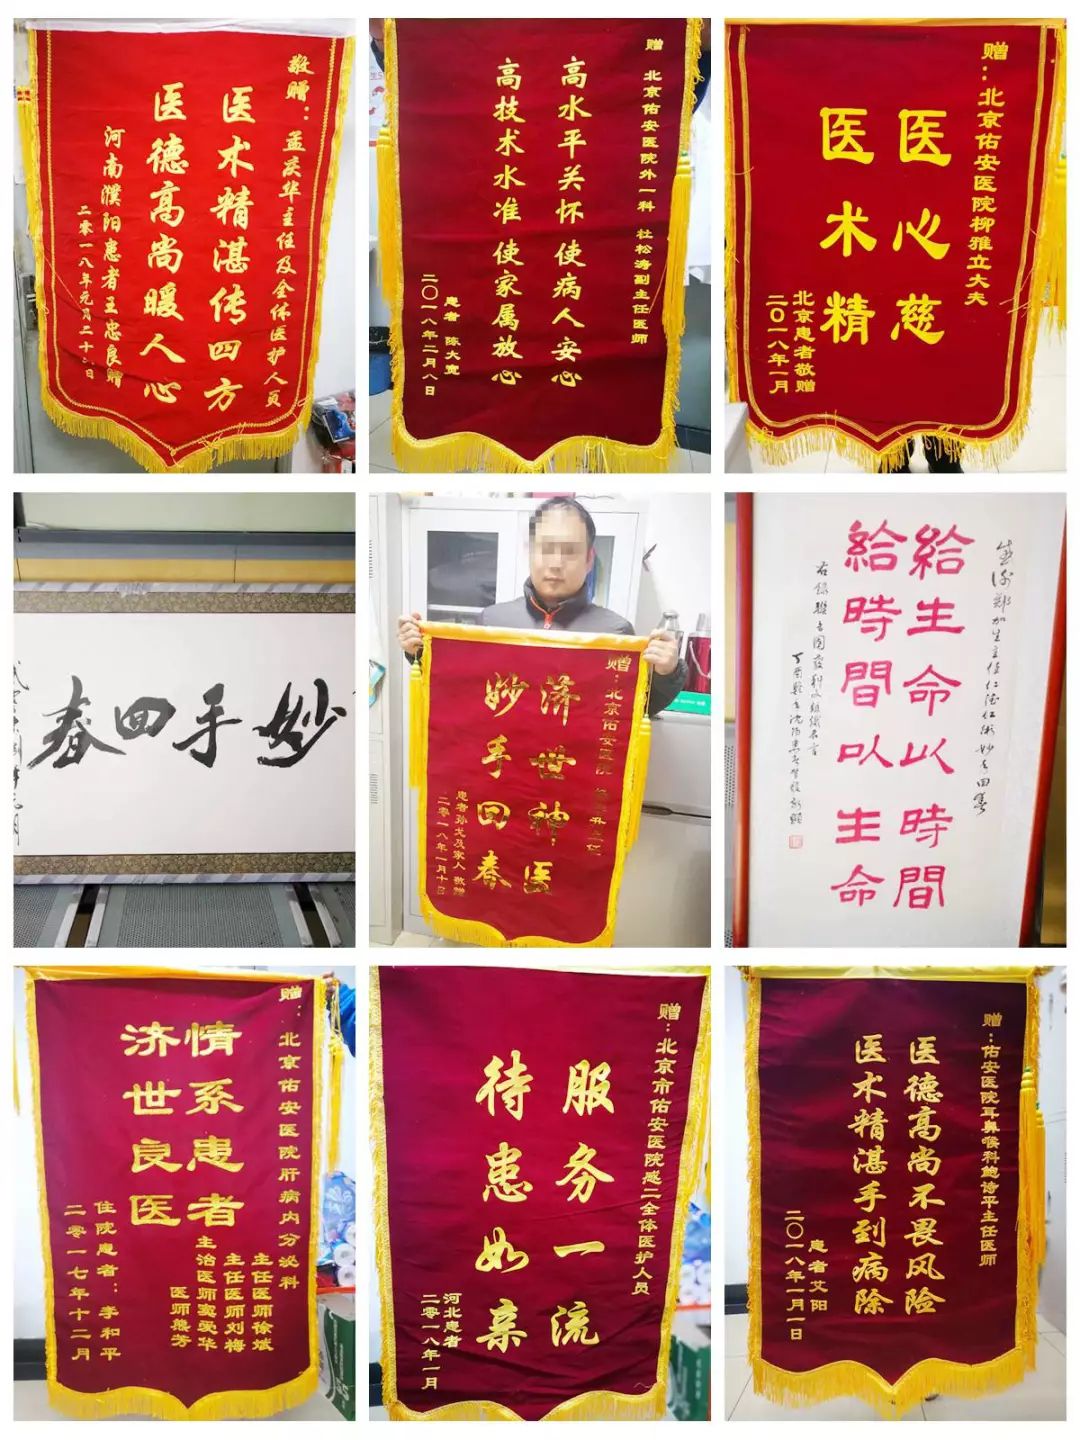 敬赠：孟庆华主任及全体医护人员
医术精湛传四方
医德高尚暖人心
河南濮阳患者王忠良赠
二零一八年元月二十
赠 北京佑安医院外一科 杜松涛副主任医师
高水平关怀使病人安心
高技术水准使家属放心
患者 陈大宽
二〇一八年二月八日
赠：北京佑安医院柳雅立大夫
医心慈
医术精
北京患者敬赠
二〇一八年一月
妙手回春
赠：北京佑安医院
济世神医
妙手回春
患者孙戈及家人敬赠
二零一八年一月十日
感谢郑加生主任仁德仁术妙手回春
給生命以時間
給時間以生命
赠：北京佑安医院肝病内分泌科
主任医师徐斌
主任医师刘梅
主治医师窦爱华
医师熊芳
情系患者
济世良医
住院患者：李和平
二零一七年十二月
赠：北京市佑安医院感二全体医护人员
服务一流
待患如亲
河北患者
二零一八年一月
赠：佑安医院耳鼻喉科鲍诗平主任医师
医德高尚不畏风险
医术精湛手到病除
患者艾阳
二〇一八年一月一日